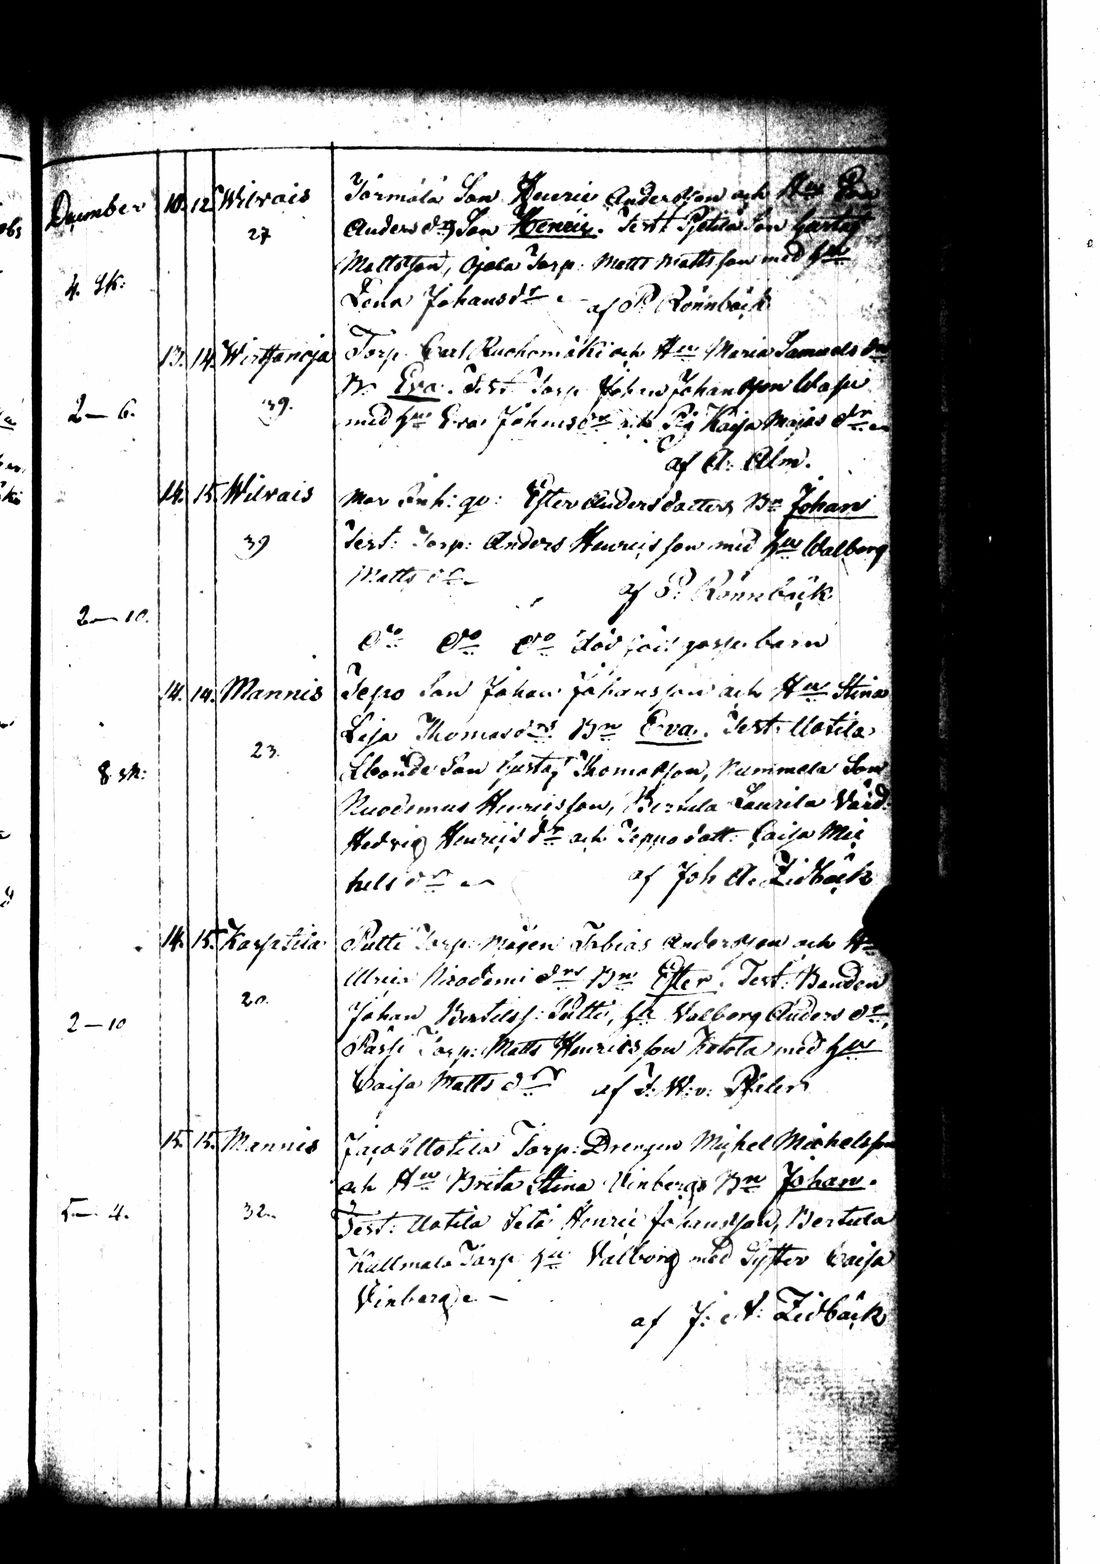 December 10. 12. Wilvais Törmälä Son Henric Andersson och Hu
27 Anders dr Son Henric. Test: Son Gustaf
Mattsson, Ojala Torp: Matts Mattsson med Hu
4. sk: Lena Johans dr af P. Rönnback
13. 14. Torp: Carl Ruohomäki och Hu Maria Samuels dr
39. Br Eva. Test: Torp: Johan Johansson
2–6. med Hu Eva Johans dr och Pig Kaisa Mats dr
af A: Alm.
14. 15. Wilvais Ester Andersdotters Br Johan
39 Test: Torp: Anders Henricsson med Hu Walborg
Matts dr af P. Rönnbäck
2–10. do do do död föd gossebarn
14. 14. Mannis Seppo Son Johan Johansson och Hu Stina
Lisa Thomas drs Br Eva. Test: Uotila
23. Åbonde Son Gustaf Thomasson, Nummela Son
8 sk: Nicodemus Henricsson, Bertula Laurila Värd:
Hedvig Henrics dr och Seppo dott: Caisa Mic
hels dr af Joh A. Zidbäck
14. 15. Karsatila Putti Torp: Mågen Tobias Andersson och Hu
Ulrica Nicodemi drs Br Ester. Test: Bonden
20. Johan Bertilss: Putti, Hu Valborg Anders dr,
2–10 Torp: Matts Henricsson Katola med Hu
Caisa Matts dr af F. W: v: Pfaler
15. 15. Mannis Jacob Uotila Torp: Drengen Michel Michelsson
och Hu Brita Stina Vinbergs Br Johan.
5–4. 32. Test: Uotila Henric Johansson, Bertula
Kullmala Torp: Hu Valborg med Syster Caisa
Vinberg
af J: A: Zidbäck